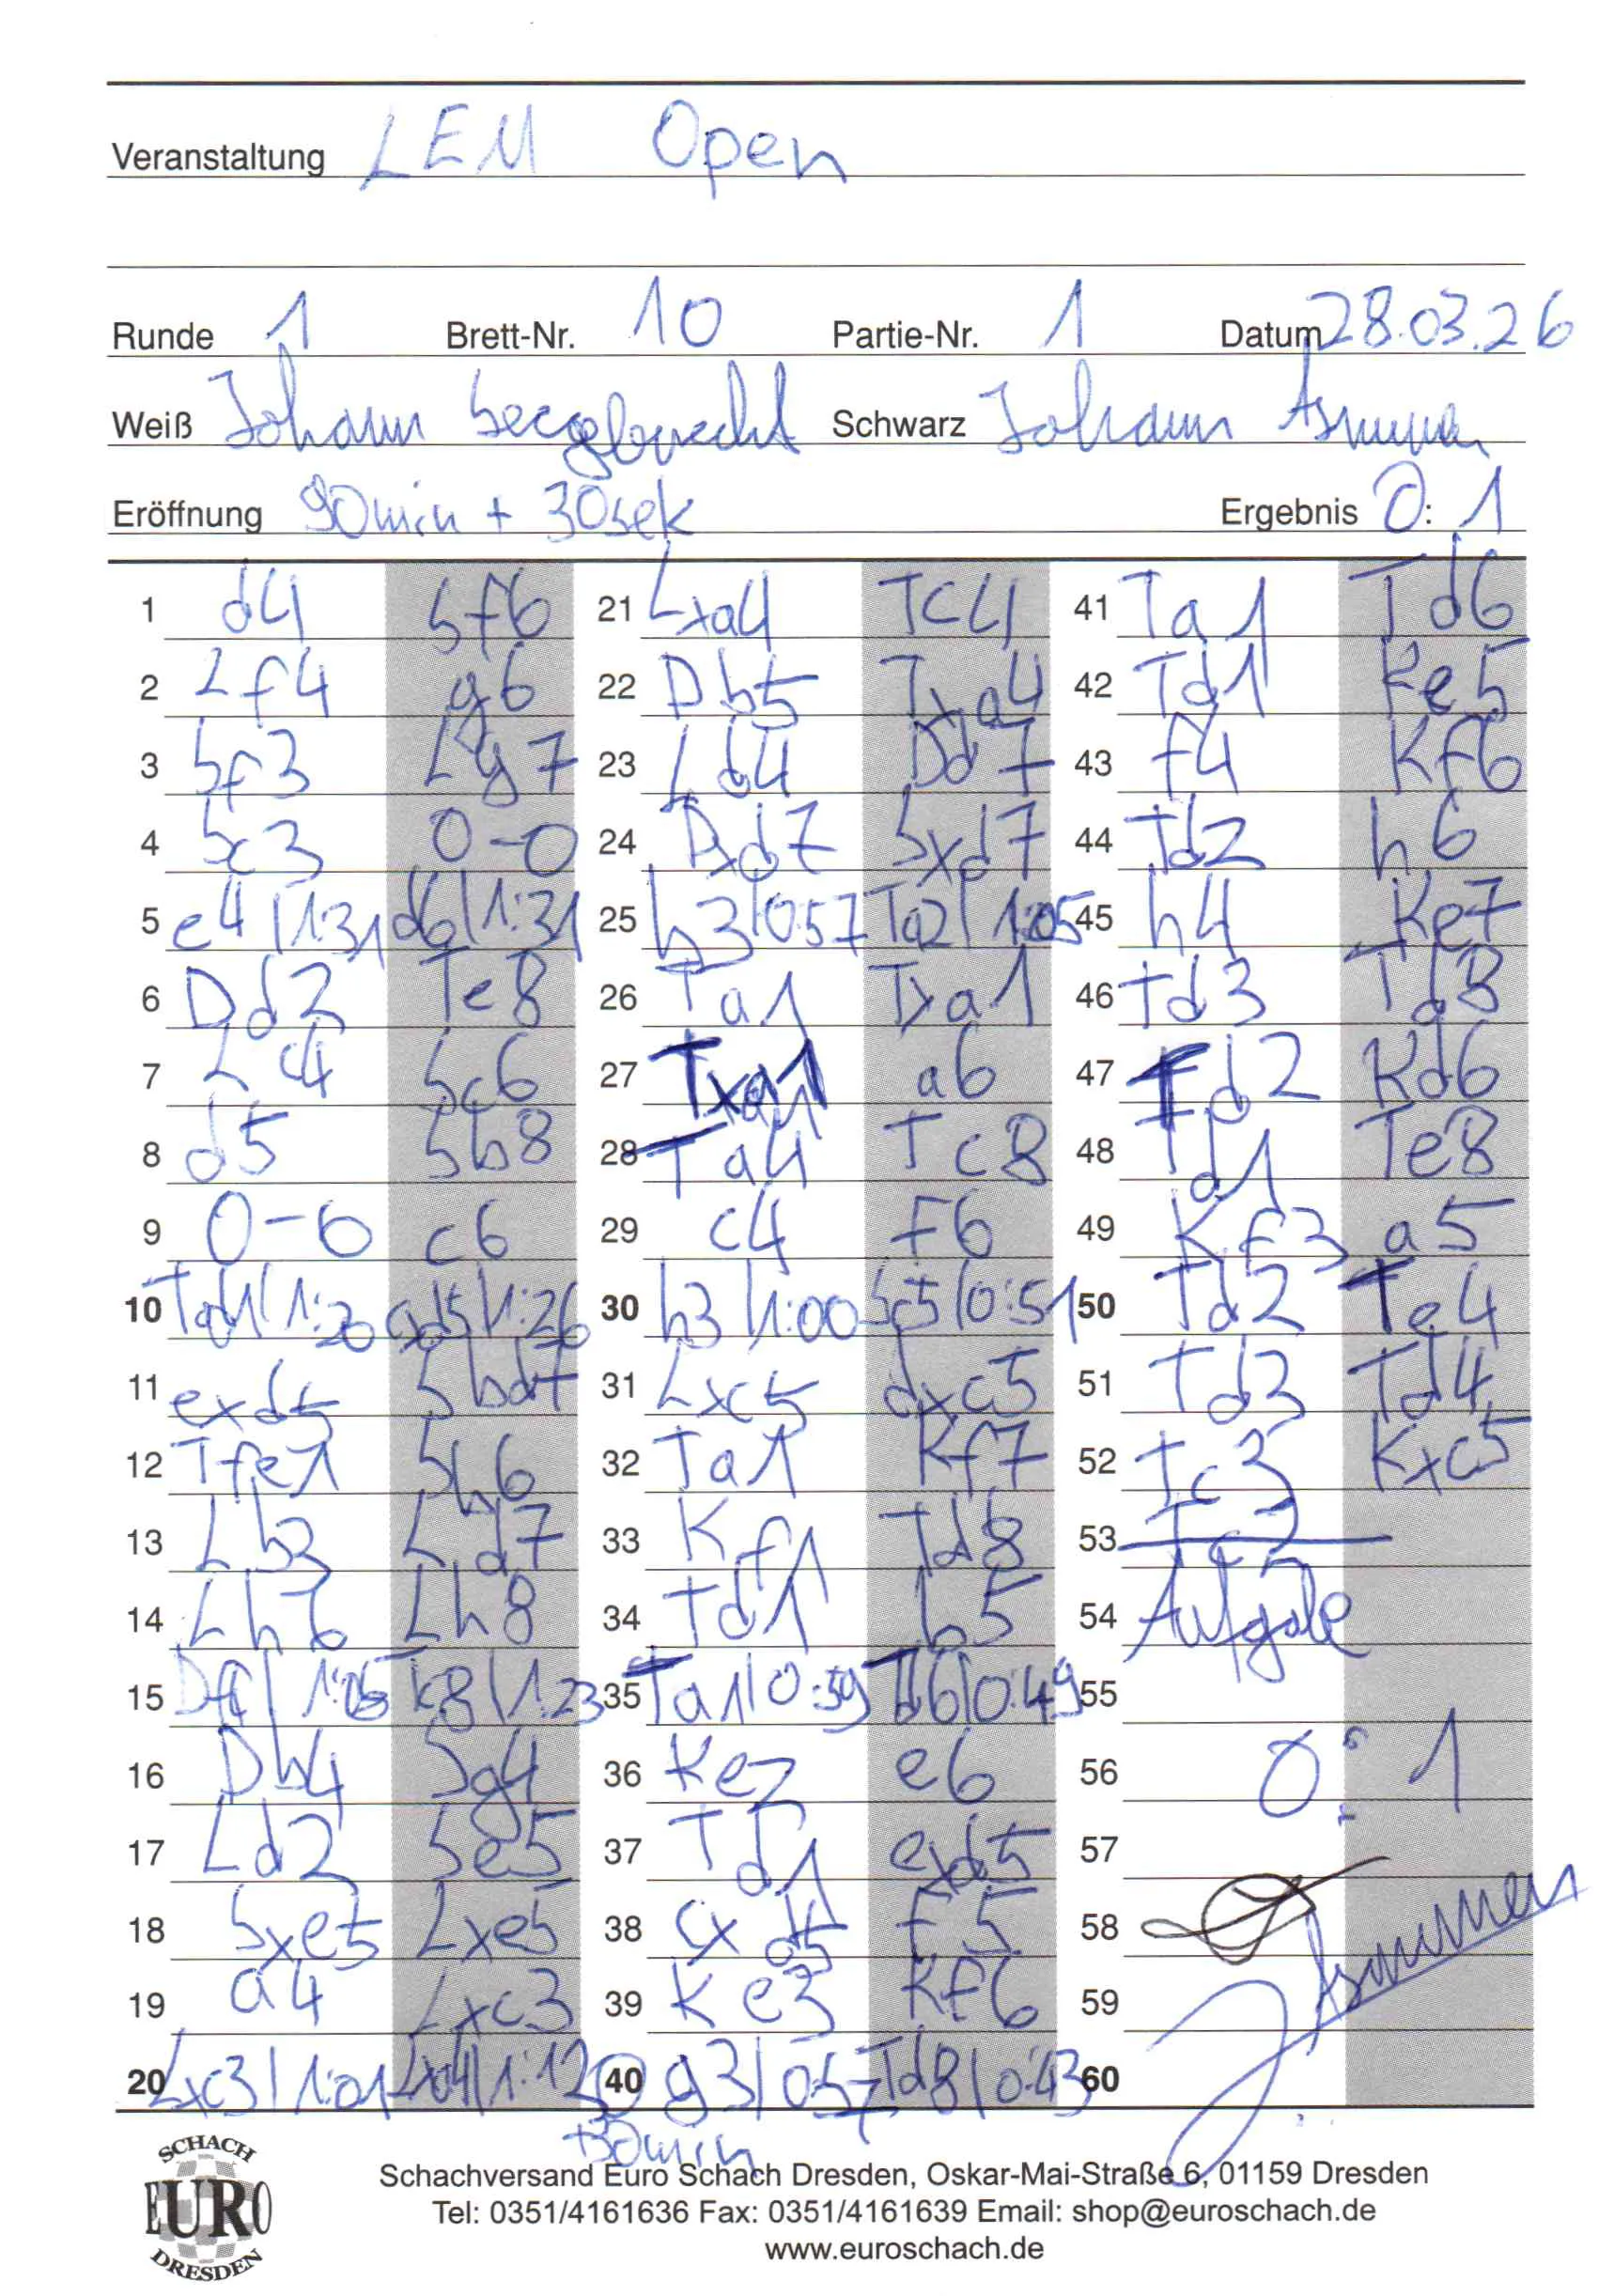 Veranstaltung LEM Open
Runde 1 Brett-Nr. 10 Partie-Nr. 1 Datum 28.03.26
Weiß Johann Schwarz Johann
Eröffnung 90min + 30sek Ergebnis 0:1
1 d4 Sf6
2 Lf4 g6
3 Sf3 Lg7
4 Sc3 0-0
5 e4 | 1:31 d6 | 1:31
6 Dd2 Te8
7 Lc4 Sc6
8 d5 Sb8
9 0-0 c6
10 Tad1 | 1:20 cxd5 | 1:26
11 exd5 Sbd7
12 Tfe1 Sb6
13 Lb3 Ld7
14 Lh6 Lh8
15 Df4 | 1:05 Tc8 | 1:23
16 Dh4 Sg4
17 Ld2 Se5
18 Sxe5 Lxe5
19 a4 Lxc3
20 Lxc3 | 1:01 Lxa4 | 1:12
21 Lxa4 Tc4
22 Db5 Txa4
23 Ld4 Dd7
24 Dxd7 Sxd7
25 b3 | 0:57 Ta2 | 1:05
26 Ta1 Txa1
27 Txa1 a6
28 Ta4 Tc8
29 c4 f6
30 h3 | 1:00 Sc5 | 0:51
31 Lxc5 dxc5
32 Ta1 Kf7
33 Kf1 Td8
34 Td1 b5
35 Ta1 | 0:59 Td6 | 0:49
36 Ke2 e6
37 Td1 exd5
38 cxd5 f5
39 Ke3 Kf6
40 g3 | 0:57 Td8 | 0:43
+30min
41 Ta1 Td6
42 Td1 Ke5
43 f4 Kf6
44 Td2 h6
45 h4 Ke7
46 Td3 Td8
47 Td2 Kd6
48 Td1 Te8
49 Kf3 a5
50 Td2 Te4
51 Td3 Td4
52 Tc3 Kxc5
53
54 Aufgabe
55
56 0:1
57
58
59
60
SCHACH
EURO
DRESDEN
Schachversand Euro Schach Dresden, Oskar-Mai-Straße 6, 01159 Dresden
Tel: 0351/4161636 Fax: 0351/4161639 Email: shop@euroschach.de
www.euroschach.de